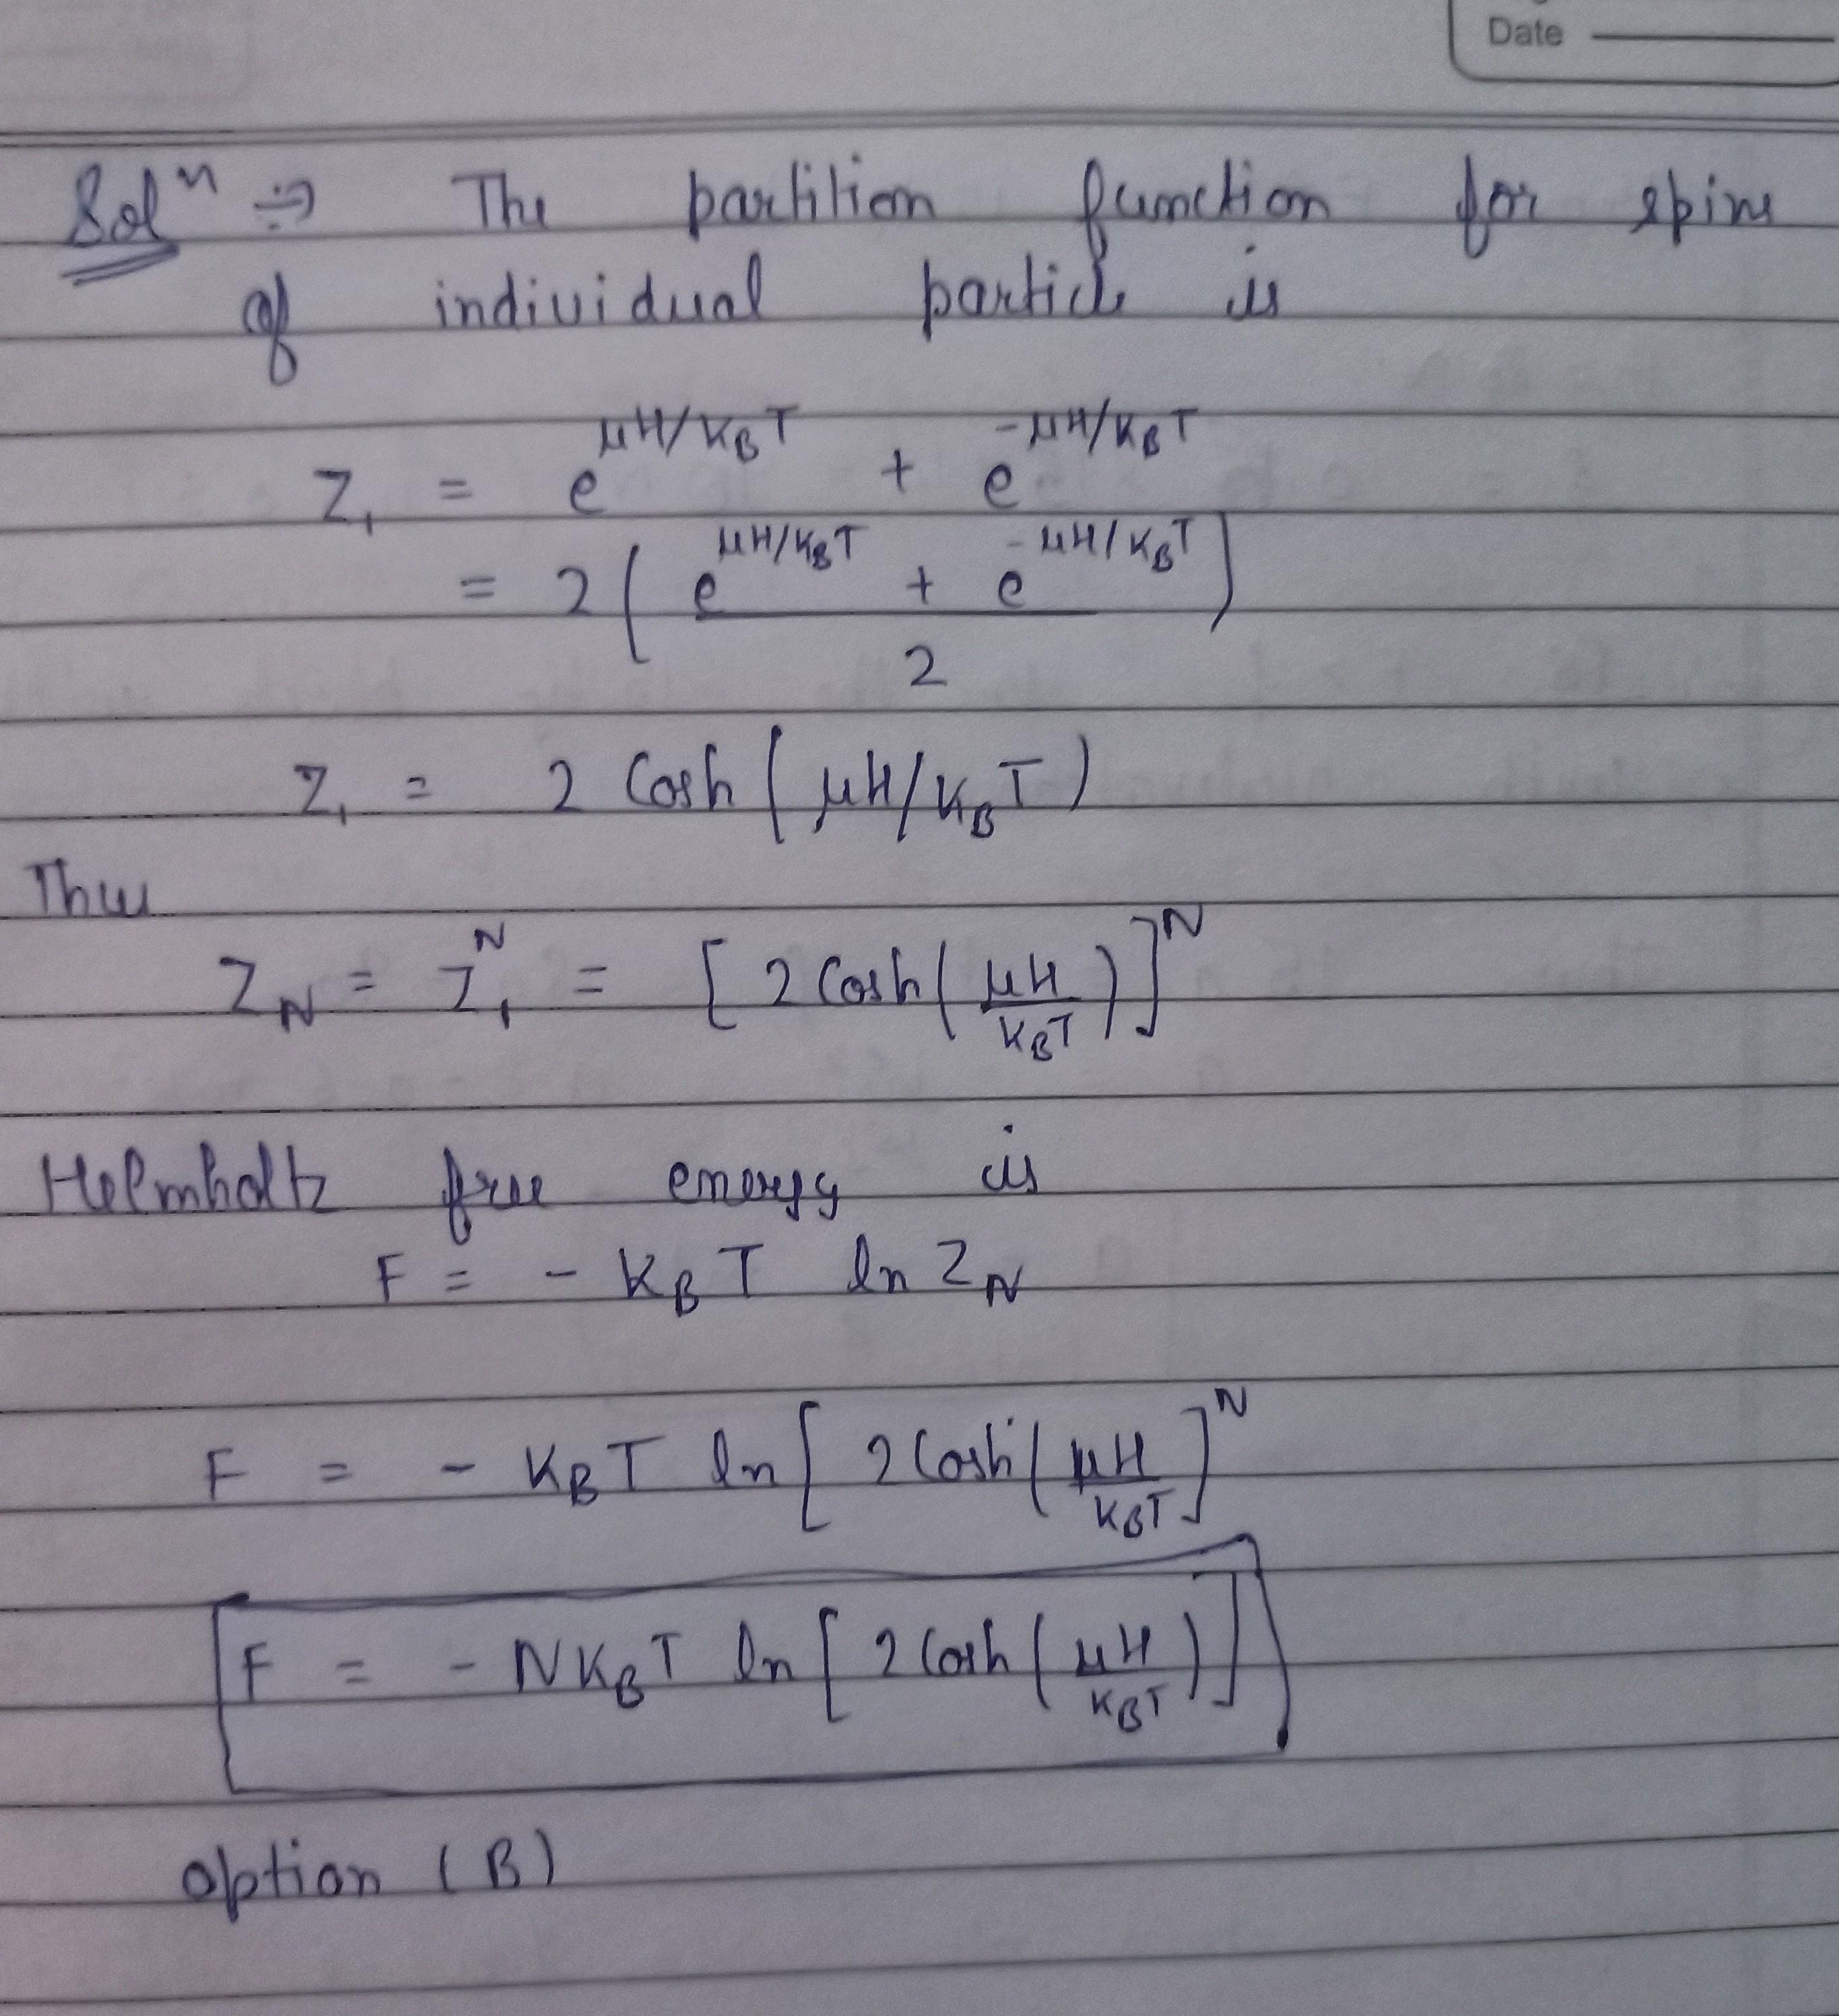 Date
Solⁿ ⇒ The partition function for spins
of individual particle is
Z₁ = e^{μH/K_BT} + e^{-μH/K_BT}
= 2 ( (e^{μH/K_BT} + e^{-μH/K_BT}) / 2 )
Z₁ = 2 Cosh ( μH/K_BT )
Thus
Z_N = Z₁^N = [ 2 Cosh ( μH / K_BT ) ]^N
Helmholtz free energy is
F = - K_B T ln Z_N
F = - K_B T ln [ 2 Cosh ( μH / K_BT ]^N
F = - N K_B T ln [ 2 Cosh ( μH / K_BT ) ]
option (B)